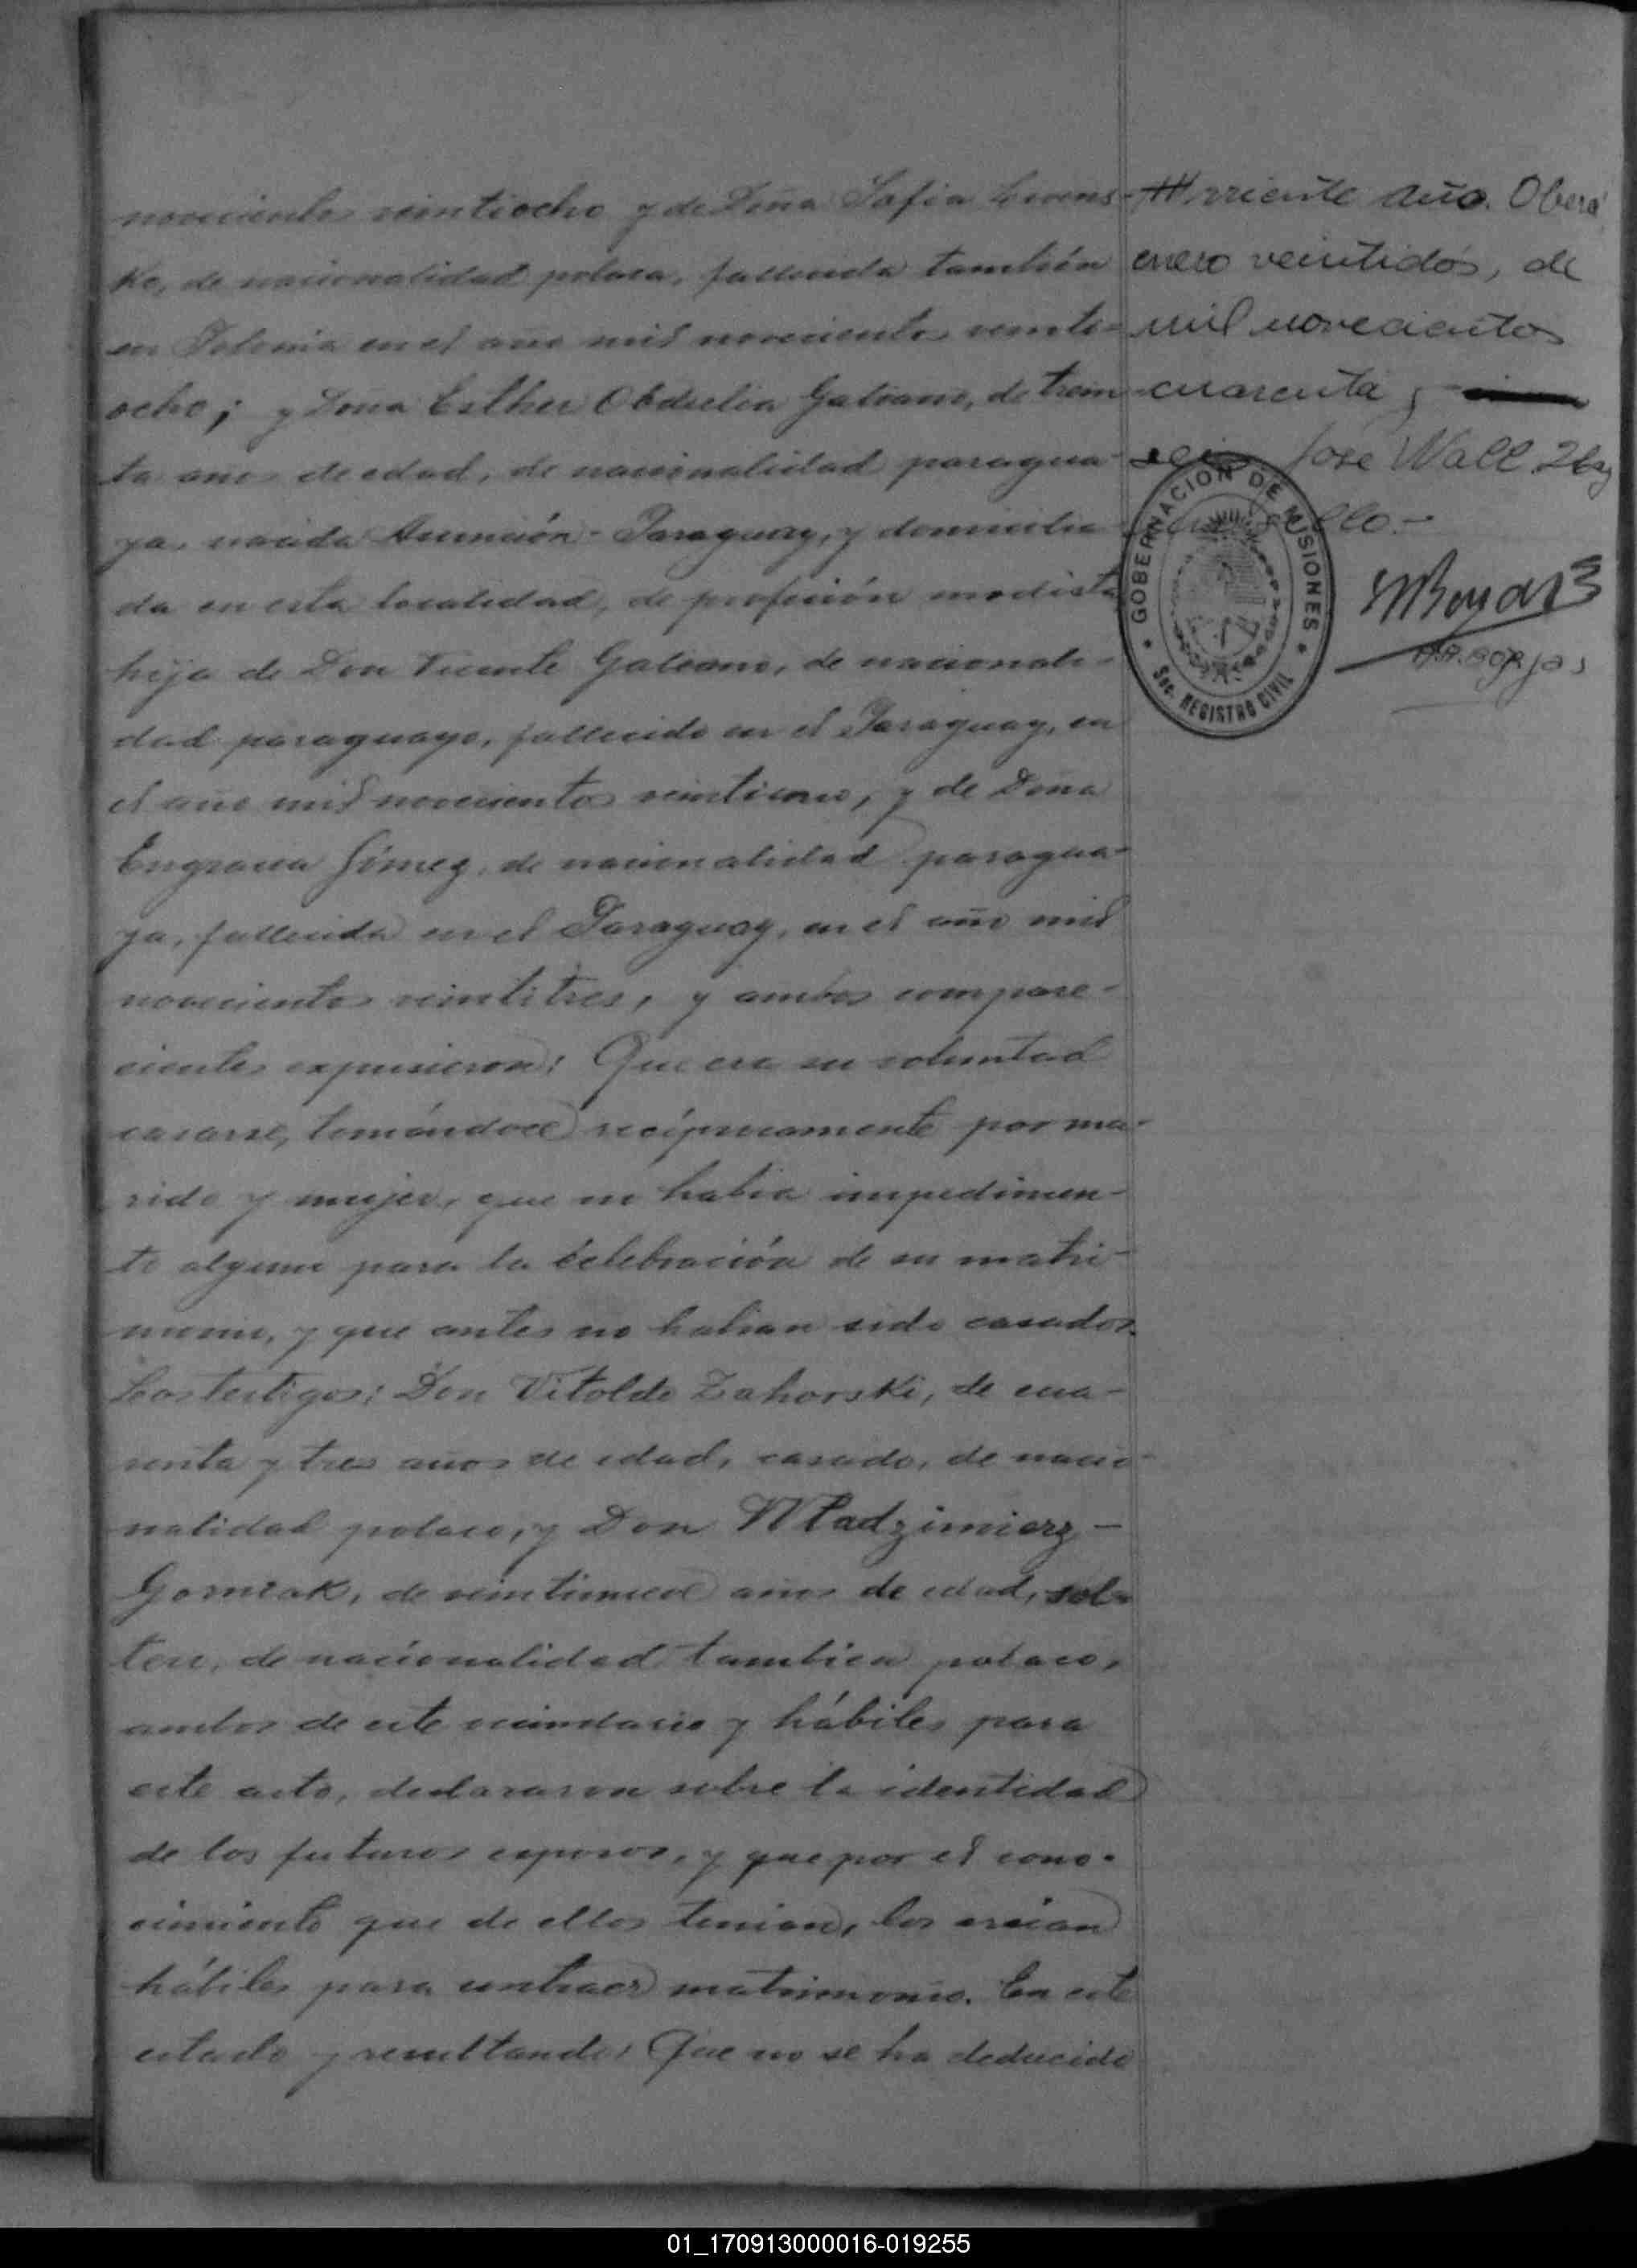 novecientos veintiocho y de Doña Sofia
ko, de nacionalidad polaca, fallecida también
en Polonia en el año mil novecientos veinti-
ocho; y Doña Esther Obdulia Galeano, de trein-
ta años de edad, de nacionalidad paragua-
ya, nacida Asunción - Paraguay, y domicilia-
da en esta localidad, de profesión modista
hija de Don Vicente Galeano, de nacionali-
dad paraguayo, fallecido en el Paraguay, en
el año mil novecientos y de Doña
Engracia Gímez, de nacionalidad paragua-
ya, fallecida en el Paraguay, en el año mil
novecientos veintitres, y ambos compare-
cientes expusieron: Que era su voluntad
casarse, tomándose recíprocamente por ma-
rido y mujer, que no habia impedimen-
to alguno para la celebración de su matri-
monio, y que antes no habian sido casados.
Los testigos: Don Vitoldo Zahorski, de cua-
renta y tres años de edad, casado, de nacio-
nalidad polaco, y Don Wladzimierz -
Gorniak, de veintinueve años de edad, sol-
tero, de nacionalidad tambien polaco,
ambos de este vecindario y hábiles para
este acto, declararon sobre la identidad
de los futuros esposos, y que por el cono-
cimiento que de ellos tenian, los creian
hábiles para contraer matrimonio. En este
estado y resultando: Que no se ha deducido
rriente año. Oberá
enero veintidós, de
mil novecientos
cuarenta y
seis José Wall 2
sello.-
GOBERNACION DE MISIONES
Sec. REGISTRO CIVIL
Borjas
01_170913000016-019255